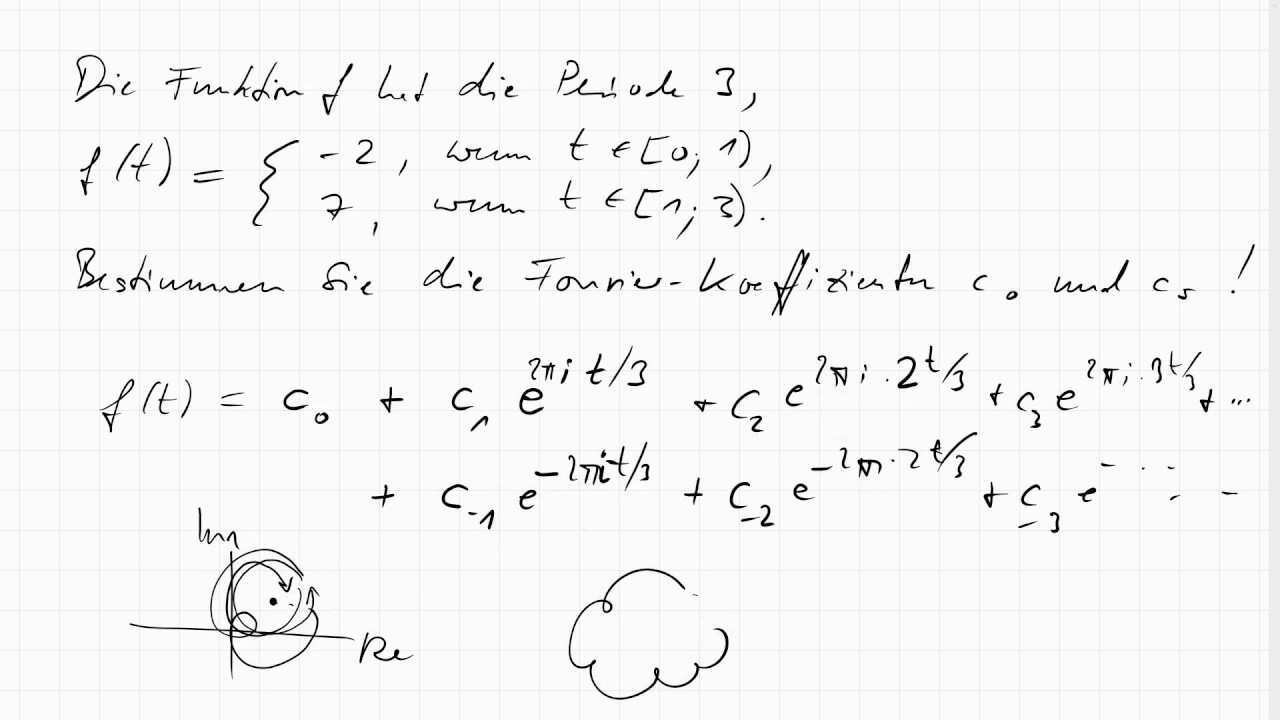 Die Funktion f hat die Periode 3,
f(t) = { -2, wenn t ∈ [0; 1),
7, wenn t ∈ [1; 3).
Bestimmen Sie die Fourier-Koeffizienten c₀ und c₅ !
f(t) = c₀ + c₁ e^{2πi t/3} + c₂ e^{2πi · 2t/3} + c₃ e^{2πi · 3t/3} + ...
+ c₋₁ e^{-2πi t/3} + c₋₂ e^{-2πi · 2t/3} + c₋₃ e^{- ...} ...
Im
Re